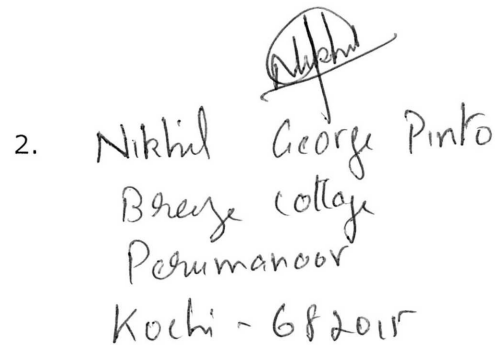 Nikhil
2. Nikhil George Pinto
Breeze Cottage
Perumanoor
Kochi - 682015